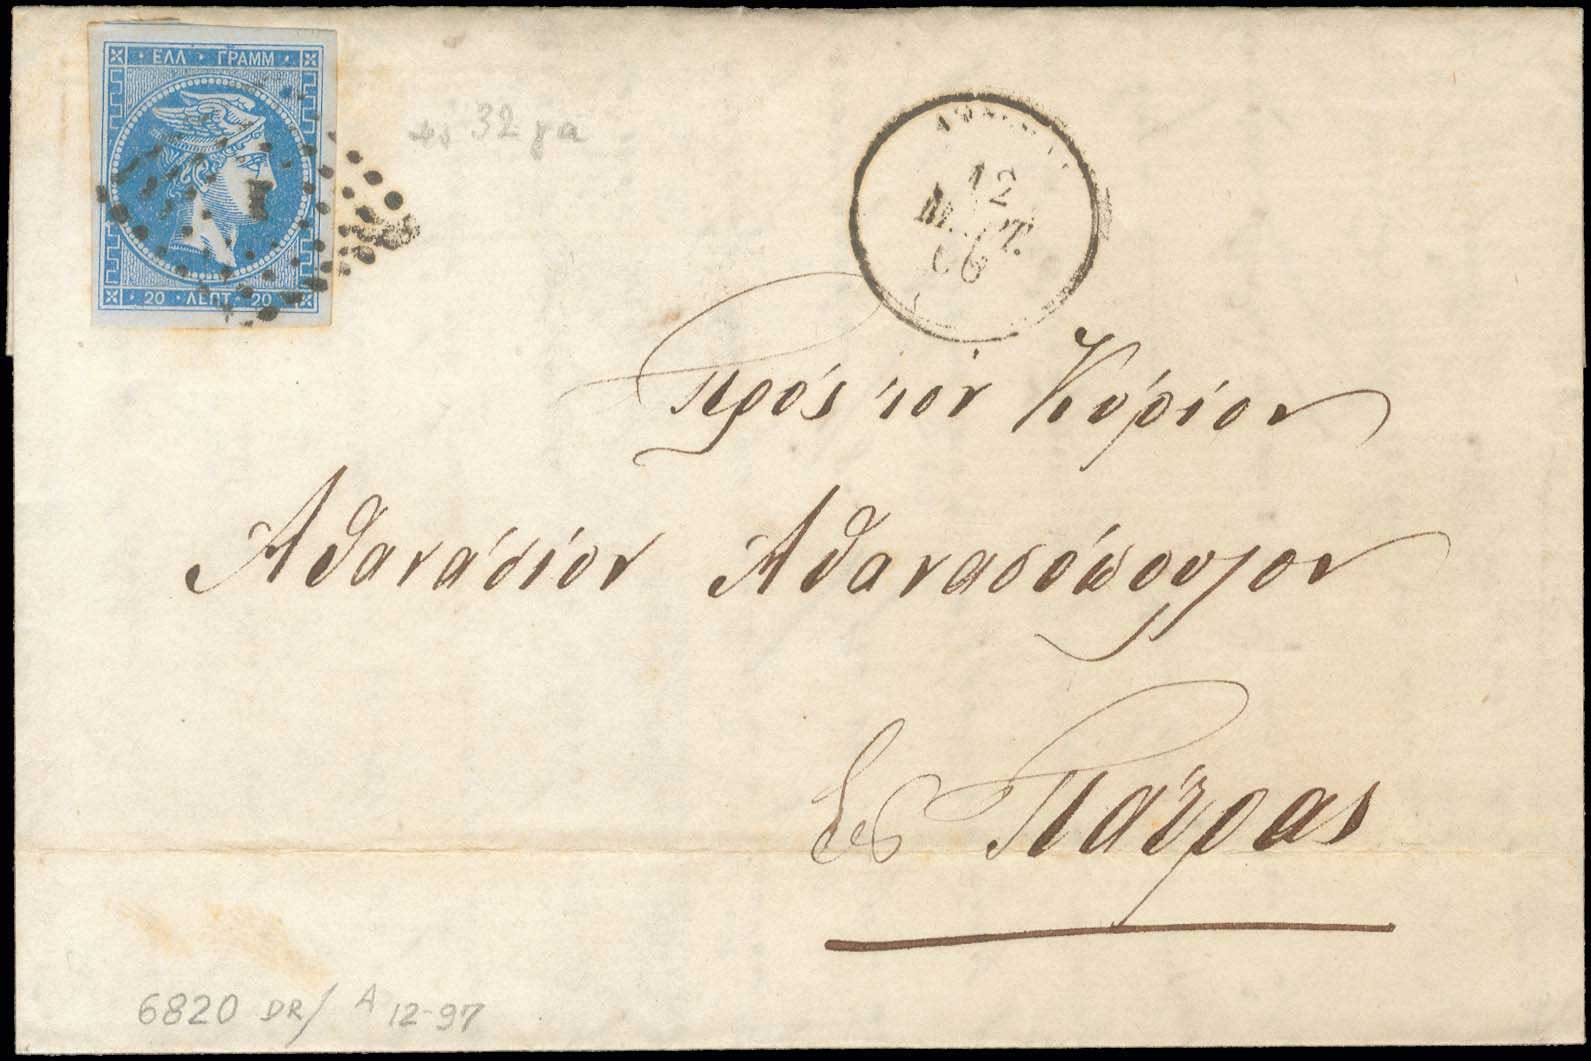 ΕΛΛ · ΓΡΑΜΜ
20 · ΛΕΠΤ · 20
32 γα
12
66
Πρὸς τὸν Κύριον
Ἀθανάσιον Ἀθανασόπουλον
Ἐς Πάτρας
6820 DR/ A 12-97